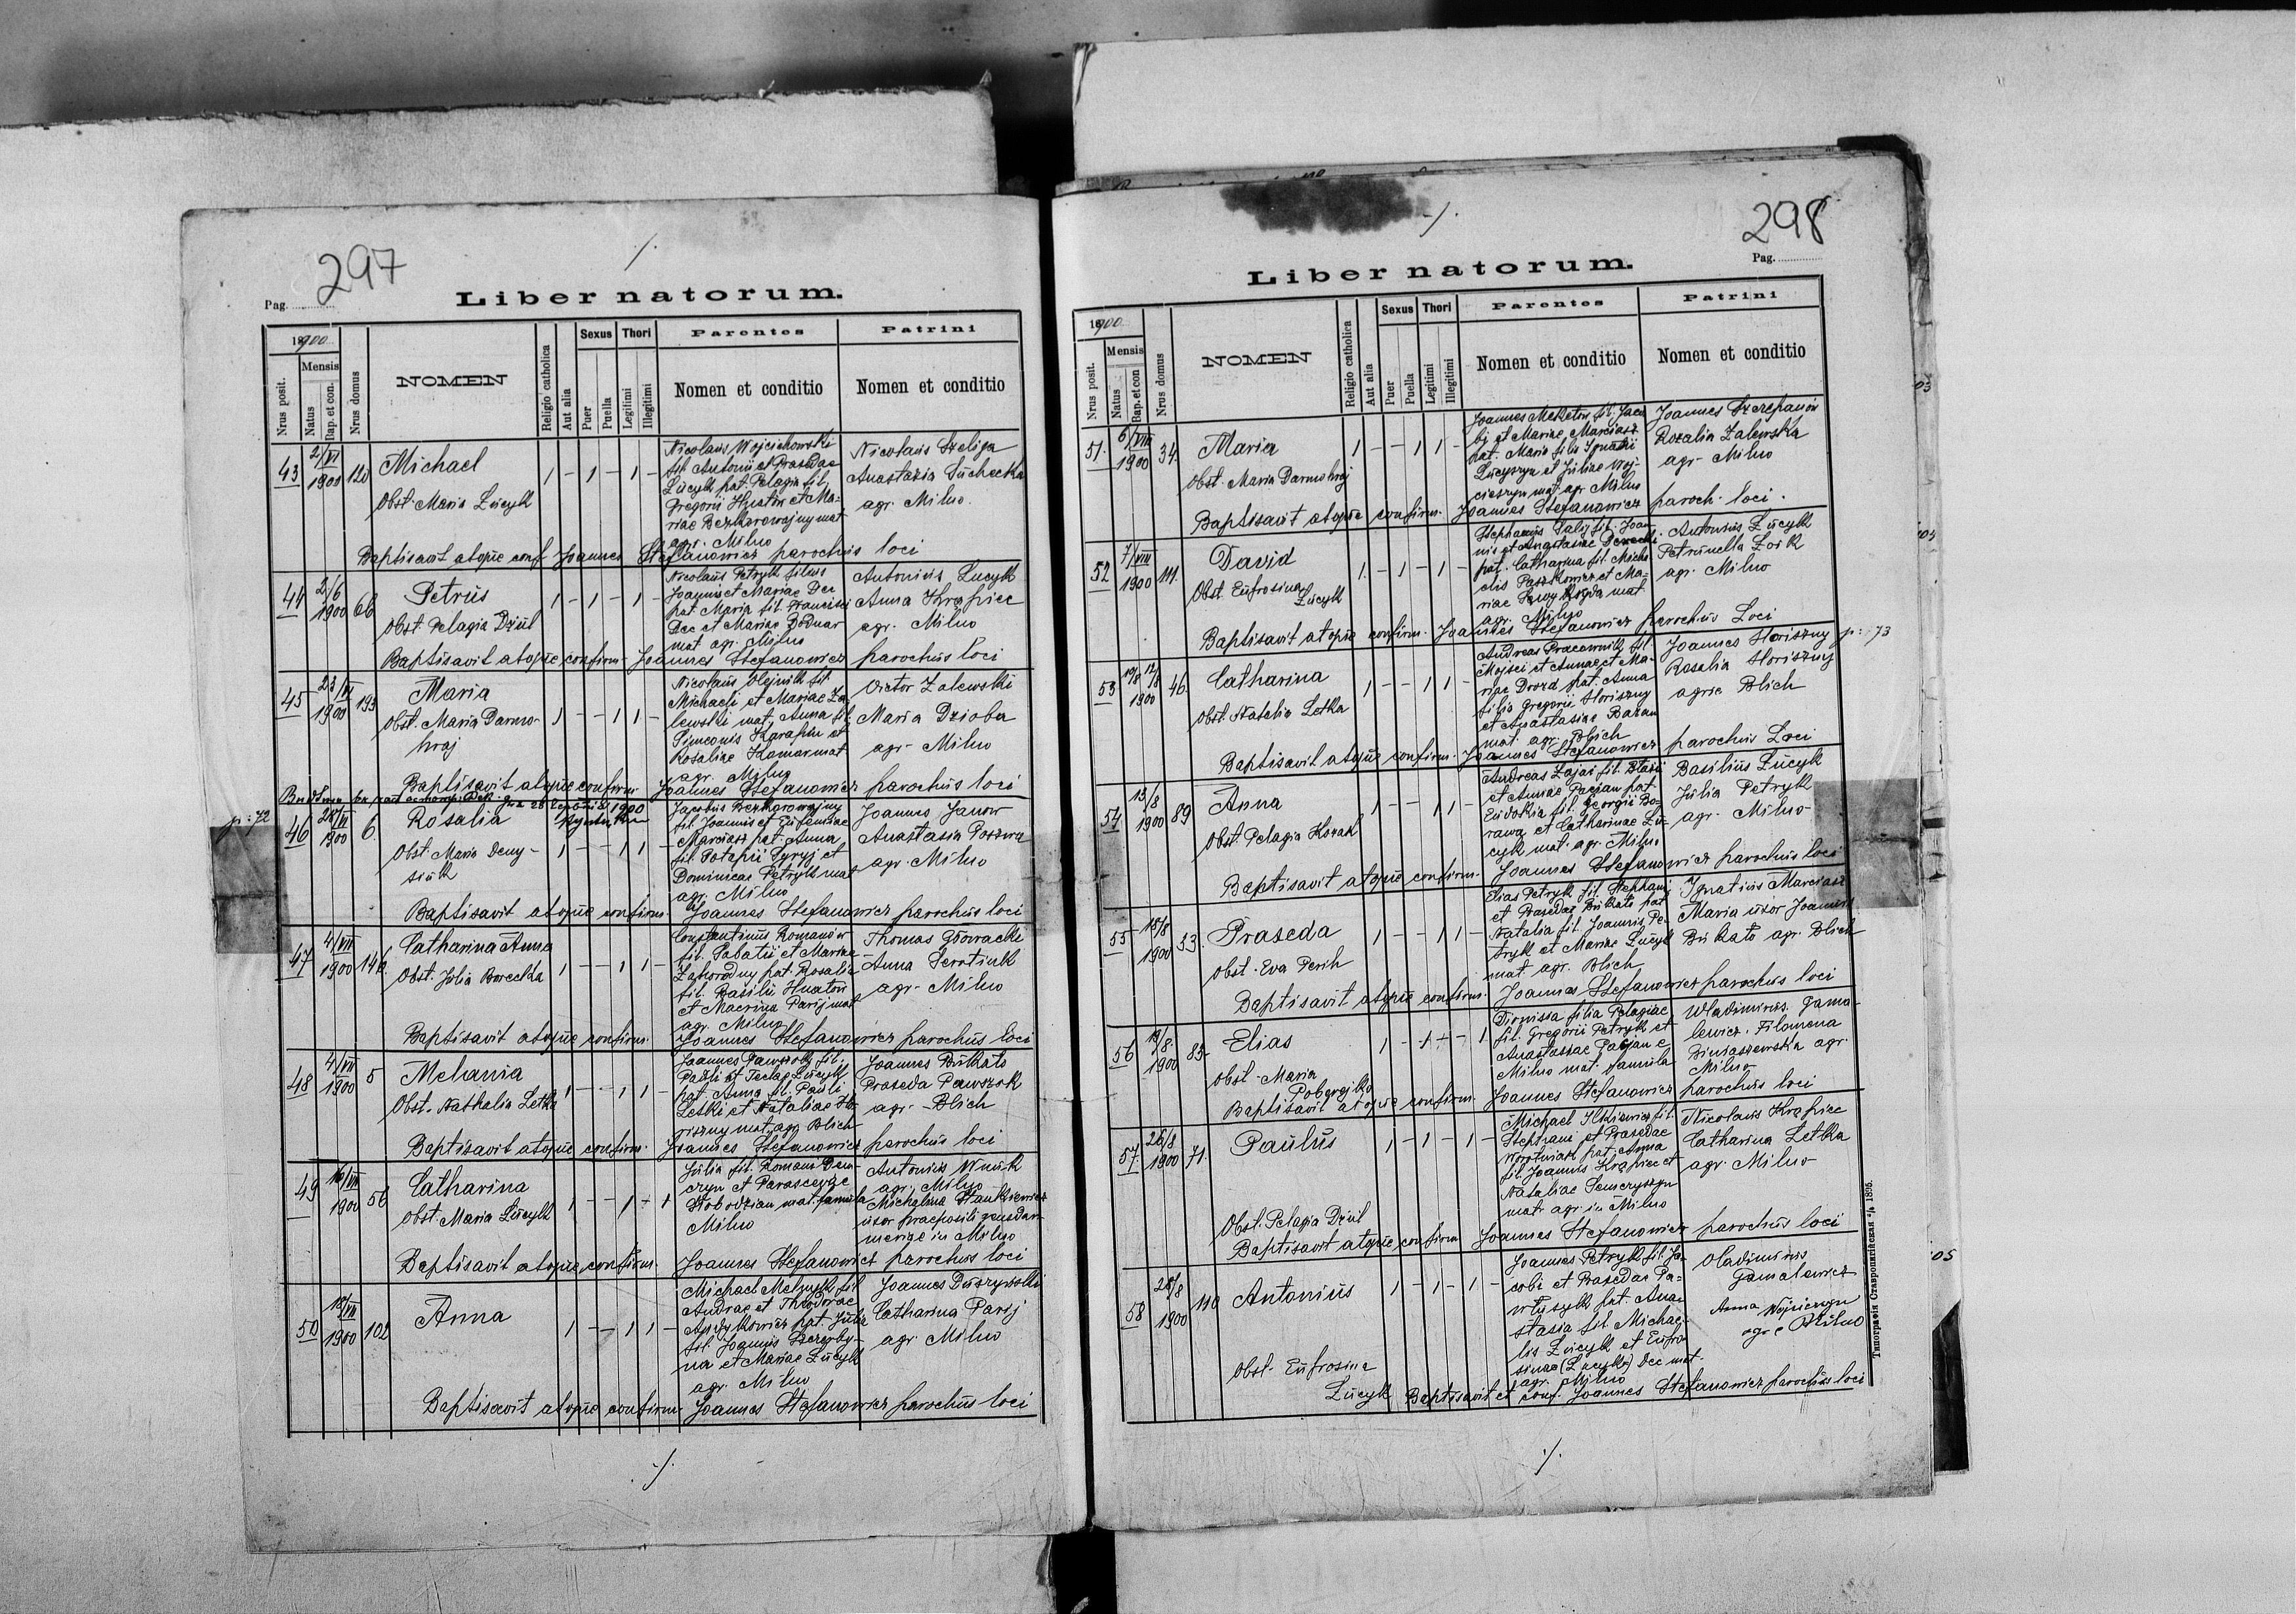 297
./.
Pag.
Liber natorum.
1900
Nrus posit.
Mensis
Natus
Bap. et con.
Nrus domus
NOMEN
Religio catholica
Aut alia
Sexus
Puer
Puella
Thori
Legitimi
Illegitimi
Parentes
Nomen et conditio
Patrini
Nomen et conditio
43
2/VI
1900
120
Michael
Obst Maria Łucyk
1 - 1 - 1 -
Nicolaus Wojciechowski
fil. Antonii et Prasedae
Łucyk pat. Pelagia fil.
Gregorii Hnatów et Ma-
riae Bezkorowajny mat
agr. Milno
Nicolaus Szeliga
Anastasia Suchecka
agr. Milno.
Baptisavit atque conf Joannes Stefanowicz parochus loci
44
2/6
1900
66
Petrus
Obst Pelagia Dziul
1 - 1 - 1 -
Nicolaus Petryk filius
Joannis et Mariae Dec
pat Maria fil. Francisci
Dec et Mariae Bodnar
mat agr. Milno
Antonius Łucyk
Anna Krąpiec
agr. Milno
Baptisavit atque confirm Joannes Stefanowicz parochus loci
45
23/VI
1900
193
Maria
Obst. Maria Darmo-
hraj
1 - - 1 1 -
Nicolaus Olejnik fil.
Michaeli et Mariae Za-
lewski mat, Anna fil.
Simeonis Karapin et
Rosaliae Komar mat
agr. Milno
Victor Zalewski
Maria Dzioba
agr. Milno
Baptisavit atque confirm Joannes Stefanowicz parochus loci
p: 72
46
28/VI
1900
6
Rosalia
Obst. Maria Deny-
siuk
1 - - 1 1 -
Jacobus Bezkorowajny
fil. Joannis et Eufemiae
Marciasz pat. Anna
fil. Potapii Syryj et
Dominicae Petryk mat
agr. Milno
Joannes Janow
Anastasia Poszwa
agr. Milno
Baptisavit atque confirm Joannes Stefanowicz parochus loci
47
4/VII
1900
146
Catharina Anna
Obst. Julia Borecka
1 - - 1 1 -
Constantinus Romanów
fil. Sabatii et Mariae
Zahorodny pat. Rosalia
fil. Basilii Hnatów
et Macrina Parij mat
agr. Milno
Thomas Głowacki
Anna Serotiuk
agr. Milno
Baptisavit atque confirm. Joannes Stefanowicz parochus loci
48
4/VII
1900
5
Melania
Obst. Nathalia Letka
1 - - 1 1 -
Joannes Pawszok fil.
Pauli et Teclae Łucyk
pat. Anna fil. Pauli
Letki et Nataliae Ho-
riszny mat. agr. Blich
Joannes Bukato
Praseda Pawszok
agr. Blich
Baptisavit atque confirm. Joannes Stefanowicz parochus loci
49
16/VII
1900
56
Catharina
Obst. Maria Łucyk
1 - - 1 - 1
Julia fil. Romani Dem-
czyn et Parascevae
Słobodzian mat. famula
Milno
Antonius Wnuk
agr. Milno
Michalina Stankiewicz
uxor praepositi gensdar-
meriae in Milno
Baptisavit atque confirm. Joannes Stefanowicz parochus loci
50
18/VII
1900
102
Anna
1 - - 1 1 -
Michael Melnyk fil
Andrae et Theodorae
Andykowicz pat Julia
fil. Joannis Szczerby-
na et Mariae Łucyk
agr. Milno
Joannes Duszyński
Catharina Parij
agr. Milno
Baptisavit atque confirm Joannes Stefanowicz parochus loci
./.
298
./.
Pag.
Liber natorum.
1900
Nrus posit.
Mensis
Natus
Bap. et con
Nrus domus
NOMEN
Religio catholica
Aut alia
Sexus
Puer
Puella
Thori
Legitimi
Illegitimi
Parentes
Nomen et conditio
Patrini
Nomen et conditio
51.
6/VIII
1900
34.
Maria
Obst. Maria Darmohraj
1 - - 1 1 -
Joannes Mekelon fil. Jaco
bi et Mariae Marciasz
pat. Maria filia Ignatii
Łucyszyn et Juliae Woj-
cieszyn mat. agr. Milno
Joannes Szczepanów
Rozalia Zalewska
agr. Milno
Baptisavit atque confirm. Joannes Stefanowicz paroch. loci.
52
7/VIII
1900
111.
David
Obst. Eufrosina
Łucyk
1 - 1 - 1 -
Stephanus Palij fil. Joan
nis et Anastasiae Derecki
pat. Catharina fil. Micha
elis Paszkowicz et Ma-
riae mat.
agr. Milno
Antonius Łucyk
Petrunella Łoik
agr. Milno
Baptisavit atque confirm. Joannes Stefanowicz parochus Loci
p: 73
53
46.
1900
Catharina
Obst. Natalia Letka
1 - - 1 1 -
Andreas Pracownik fil.
Mojsei et Annae et Ma-
riae Drozd pat. Anna
filia Gregorii Horiszny
et Anastasiae Baran
mat. agr. Blich
Joannes Horiszny
Rosalia Horiszny
agric Blich
Baptisavit atque confirm. Joannes Stefanowicz parochus Loci
54
13/8
1900
89
Anna
Obst. Pelagia Kozak
1 - - 1 1 -
Andreas Zając fil. Blasii
et Annae Pacjan pat
Eudokia fil. Georgii Bo-
rawa et Catharinae Łu-
cyk mat. agr. Milno
Basilius Łucyk
Julia Petryk
agr. Milno
Baptisavit atque confirm. Joannes Stefanowicz parochus loci
55
18/8
1900
33.
Praseda
Obst. Eva Perih
1 - - 1 1 -
Elias Petryk fil. Stephani
et Prasedae Bukato pat
Natalia fil. Joannis Pe-
tryk et Mariae Łucyk
mat agr. Blich
Ignatius Marciasz
Maria uxor Joannis
Bukato agr. Blich
Baptisavit atque confirm. Joannes Stefanowicz parochus loci
56
19/8
1900
83.
Elias
Obst. Maria
1 - 1 - - 1
Dionissa filia Pelagiae
fil. Gregorii Petryk et
Anastasiae Pacjan e
Milno mat. famula
Wladimirus. Gama-
lewicz. Filomena
Biniaszewska agr.
Milno
Baptisavit atque confirm. Joannes Stefanowicz parochus loci
57.
26/8
1900
71.
Paulus
1 - 1 - 1 -
Michael Ilkiewicz fil.
Stephani et Prasedae
Worotniak pat. Anna
fil. Joannis Krąpiec et
Nataliae Semczyszyn
mat agr. in Milno
Nicolaus Krąpiec
Catharina Letka
agr. Milno
Obst. Pelagia Dziul
Baptisavit atque confirm Joannes Stefanowicz parochus loci
58
28/8
1900
110
Antonius
1 - 1 - 1 -
Joannes Petryk fil. Ja-
cobi et Prasedae Pa-
włusyk pat. Ana-
stasia fil. Michae-
lis Łucyk et Eufro-
sinae (Łucyk) Dec mat.
agr. Milno
Vladimirus
Gamalewicz
Anna Wojcieszyn
agr e Milno
Obst. Eufrosina
Łucyk Baptisavit et conf. Joannes Stefanowicz parochus loci
./.
03
04
05
Типографія Ставропигійская 1895.